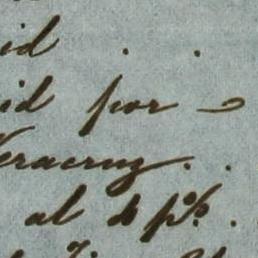 id . .
id por
Veracruz . .
al 4 p%.